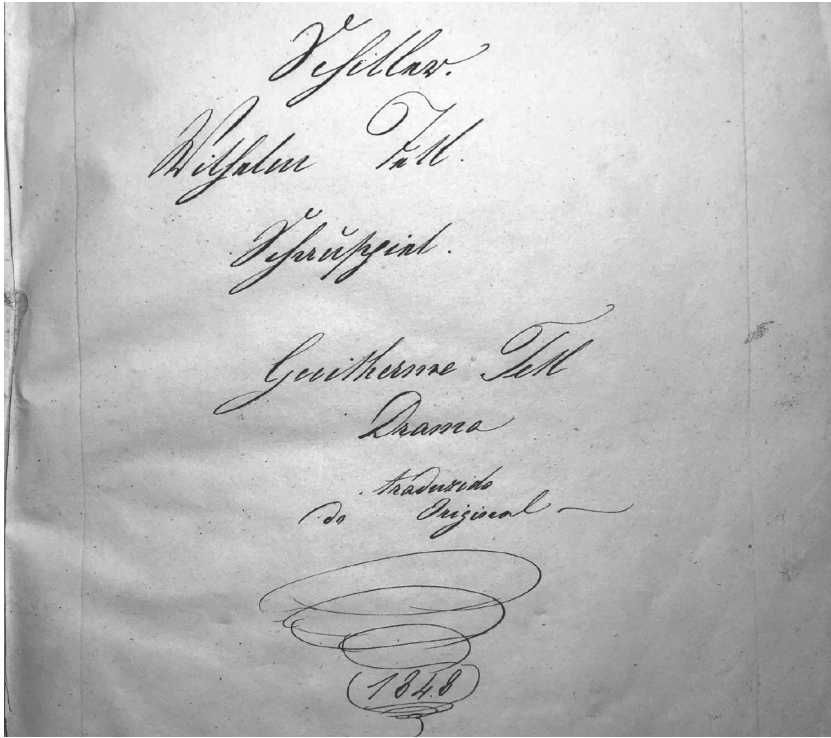 Schiller.
Wilhelm Tell.
Schauspiel.
Guilherme Tell
Drama
traduzido
do Original
1848